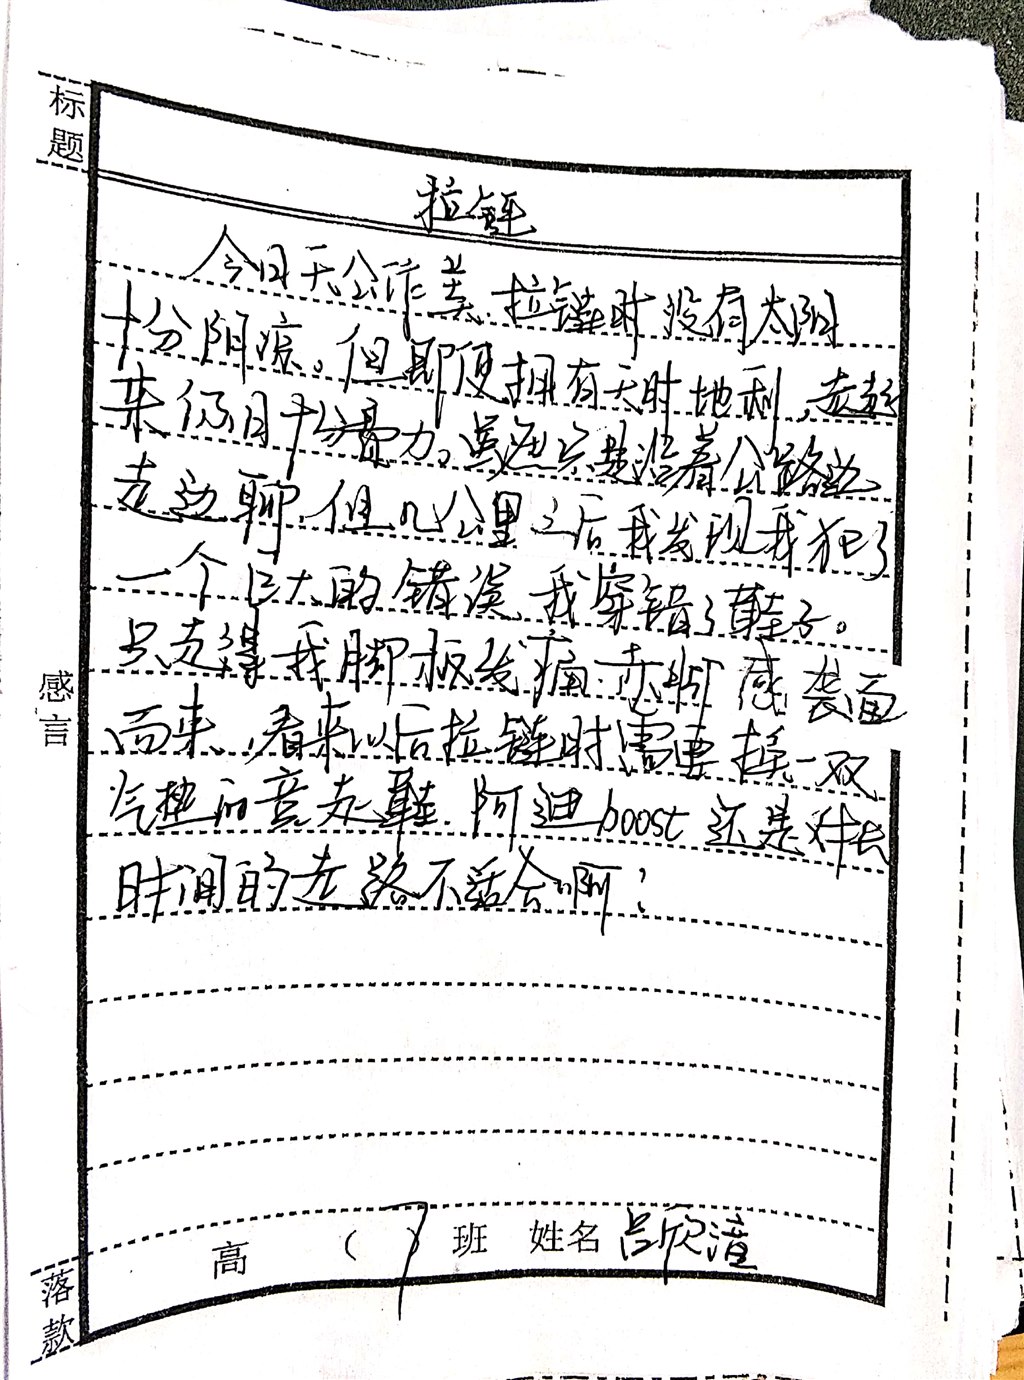 标题
拉链
今日天公作美,拉链时没有太阳
十分阴凉。但即便拥有天时地利,走起
来仍旧十分费力。虽然只是沿着公路边
走边聊,但几公里之后我发现我犯了
一个巨大的错误,我穿错了鞋子。
只走得我脚板发痛,赤脚感袭面
感言
而来,看来以后拉链时需要换一双
气垫的竞走鞋,阿迪boost还是对长
时间的走路不适合啊!
高 ( 7 ) 班 姓名 吕欣
落款